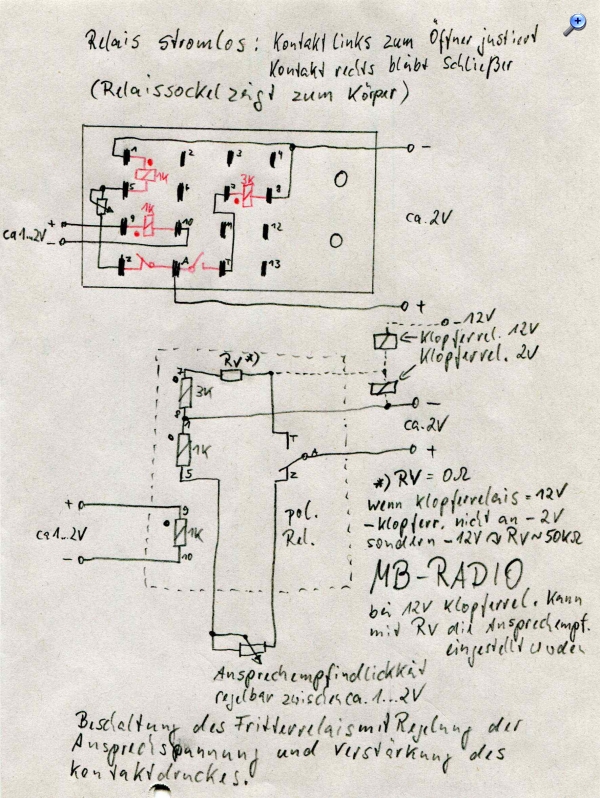 Relais stromlos: Kontakt links zum Öffner justiert
Kontakt rechts bleibt Schließer
(Relaissockel zeigt zum Körper)
1 2 3 4 -
1K
5 6 7 3K 8
ca 1...2V + 9 1K 10 11 12 ca. 2V
-
Z A T 13
+
-12V
Klopferrel. 12V
Klopferrel. 2V
RV *)
7
3K
8
-
ca. 2V
1
1K
5
T
A
+
Z
*) RV = 0Ω
wenn Klopferrelais = 12V
-Klopferr. nicht an -2V
sondern -12V RV ~ 50KΩ
+
9
ca 1...2V
1K
-
10
pol.
Rel.
MB-RADIO
bei 12V Klopferrel. kann
mit RV die Ansprechempf.
eingestellt werden
Ansprechempfindlichkeit
regelbar zwischen ca. 1...2V
Beschaltung des Fritterrelais mit Regelung der
Ansprechspannung und Verstärkung des
Kontaktdruckes.